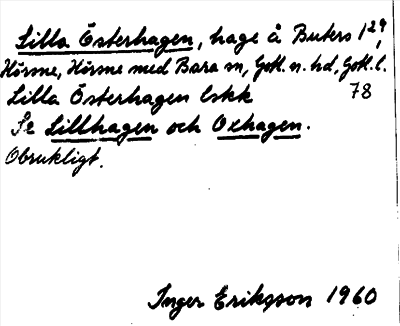 Lilla Österhagen, hage å Buters 1²⁹,
Hörsne, Hörsne med Bara sn, Gotl. n. hd, Gotl. l.
Lilla Österhagen Eskk 78
Se Lillhagen och Oxhagen.
Obrukligt.
Inger Eriksson 1960